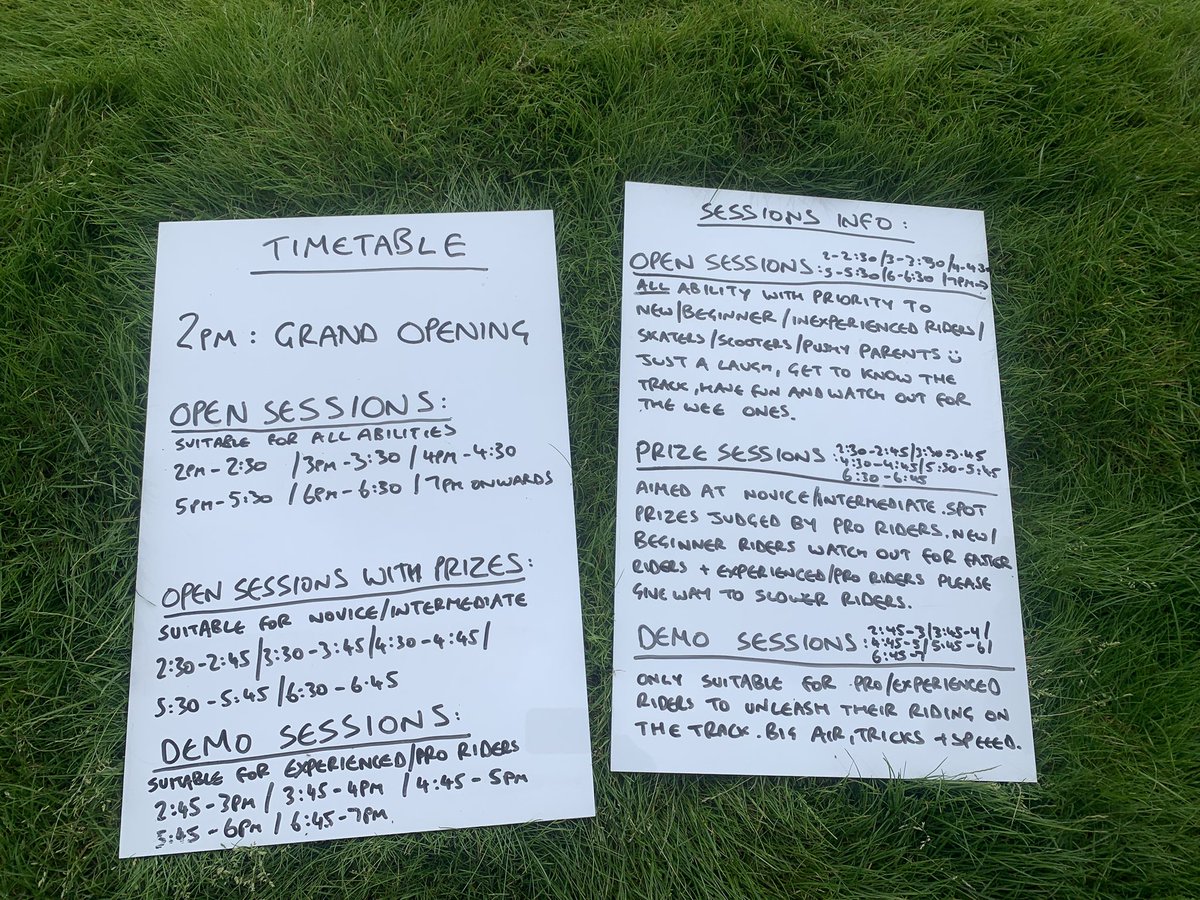 TIMETABLE
2PM : GRAND OPENING
OPEN SESSIONS:
SUITABLE FOR ALL ABILITIES
2PM-2:30 /3PM-3:30 /4PM-4:30
5PM-5:30 /6PM-6:30 /7PM ONWARDS
OPEN SESSIONS WITH PRIZES:
SUITABLE FOR NOVICE/INTERMEDIATE
2:30-2:45/3:30-3:45/4:30-4:45/
5:30-5:45/6:30-6:45
DEMO SESSIONS:
SUITABLE FOR EXPERIENCED/PRO RIDERS
2:45-3PM/ 3:45-4PM /4:45-5PM
5:45-6PM/6:45-7PM
SESSIONS INFO:
2-2:30/3-3:30/4-4:30
OPEN SESSIONS:5-5:30/6-6:30/7PM→
ALL ABILITY WITH PRIORITY TO
NEW/BEGINNER/INEXPERIENCED RIDERS/
SKATERS/SCOOTERS/PUSHY PARENTS ☺
JUST A LAUGH, GET TO KNOW THE
TRACK, HAVE FUN AND WATCH OUT FOR
THE WEE ONES.
PRIZE SESSIONS :2:30-2:45/3:30-3:45
4:30-4:45/5:30-5:45
6:30-6:45
AIMED AT NOVICE/INTERMEDIATE.SPOT
PRIZES JUDGED BY PRO RIDERS. NEW/
BEGINNER RIDERS WATCH OUT FOR FASTER
RIDERS + EXPERIENCED/PRO RIDERS PLEASE
GIVE WAY TO SLOWER RIDERS.
2:45-3/3:45-4/
DEMO SESSIONS :4:45-5/5:45-6/
6:45-7
ONLY SUITABLE FOR PRO/EXPERIENCED
RIDERS TO UNLEASH THEIR RIDING ON
THE TRACK. BIG AIR, TRICKS + SPEEED.